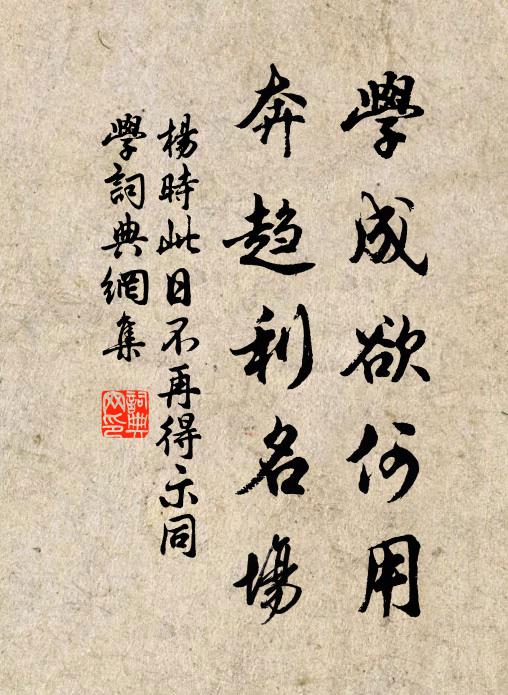 學成欲何用
奔趨利名場
楊時此日不再得示同
學詞典網集
詞典网印